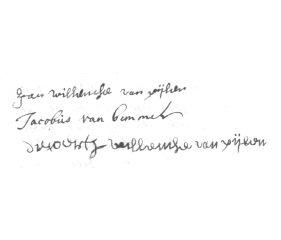 Jan willemse van rijken
Jacobus van bemmel
willemse van rijken